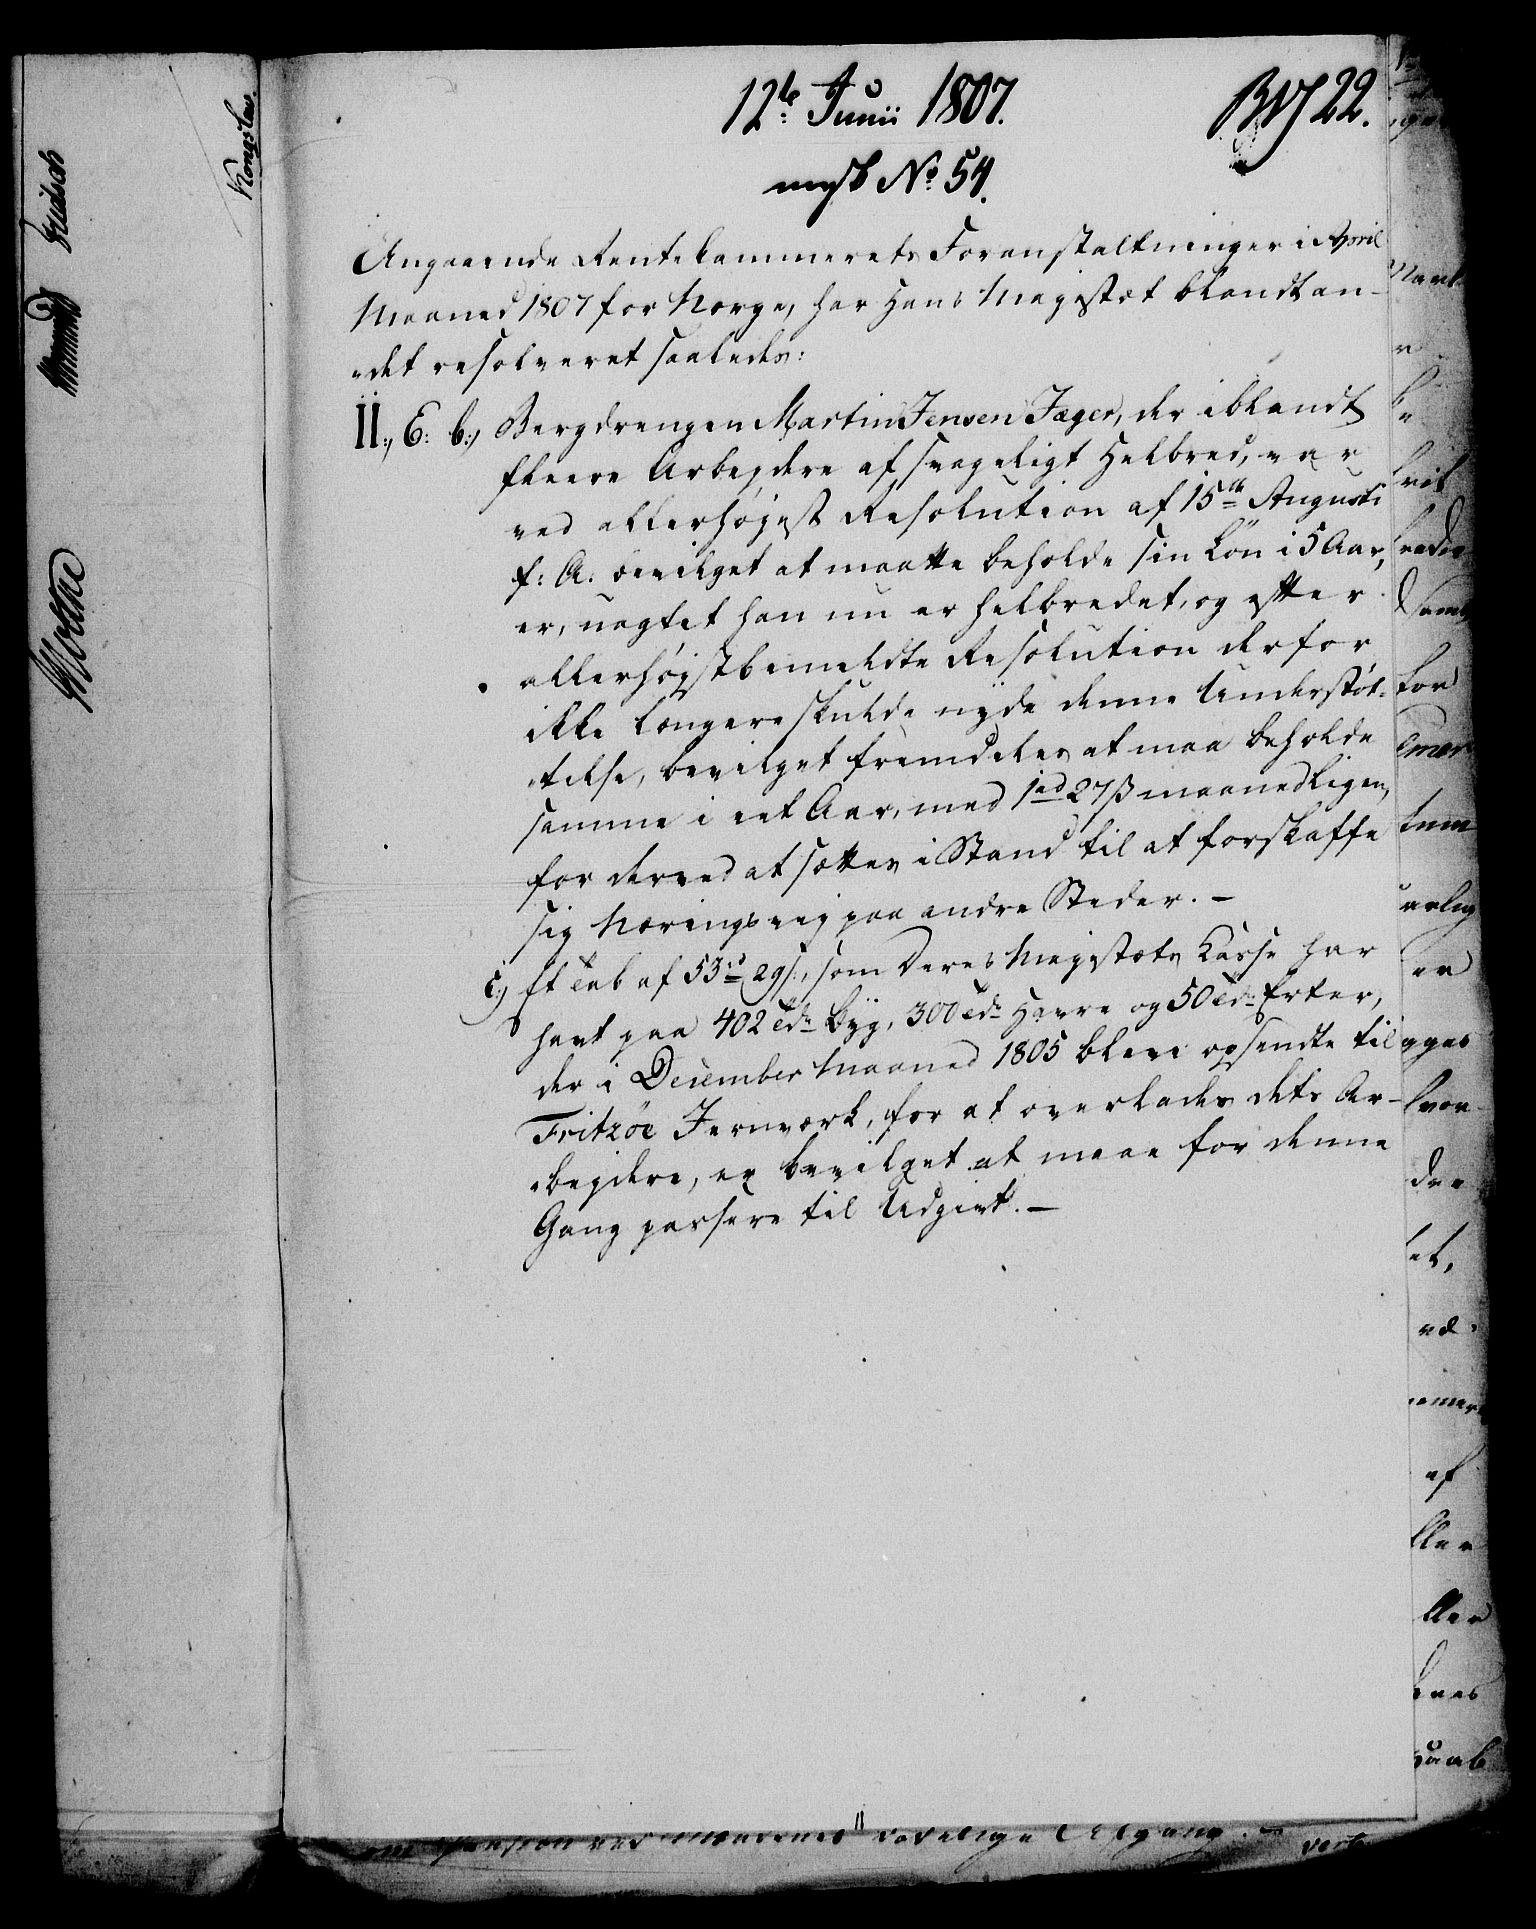 12te Junii 1807.
BVJ 22.
No 54.
Angaaende Rentekammerets Foranstaltninger i April
Maaned 1807 for Norge, har Hans Majestæt blandt an-
det resolveret saaledes:
II:, E: b:, Bergdrengen Martin Jensen Jæger, der iblandt
fleere Arbejdere af svageligt Helbred, var
ved allerhøjest Resolution af 15de Augusti
f: A. bevilget at maatte beholde sin Løn i 5 Aar,
er, uagtet han nu er helbredet, og efter
allerhøjstbemeldte Resolution derfor
ikke længere skulde nyde denne Understøt-
telse, bevilget fremdeles at maa beholde
samme i eet Aar, med 1rd 27 ß maanedligen,
for derved at sættes i Stand til at forskaffe
sig Næringsvej paa andre Steder. —
c:, Et Tab af 53rd 29 ß:, som Deres Majestæts Casse har
havt paa 402 Tdr Byg, 300 Tdr Havre og 50 Tdr Erter,
der i December Maaned 1805 bleve opsendte til
Fritzöe Jernværk, for at overlades dets Ar-
bejdere, er bevilget at maae for denne
Gang passere til Udgivt. —
Kongslew.
Fridsch
Mølthe